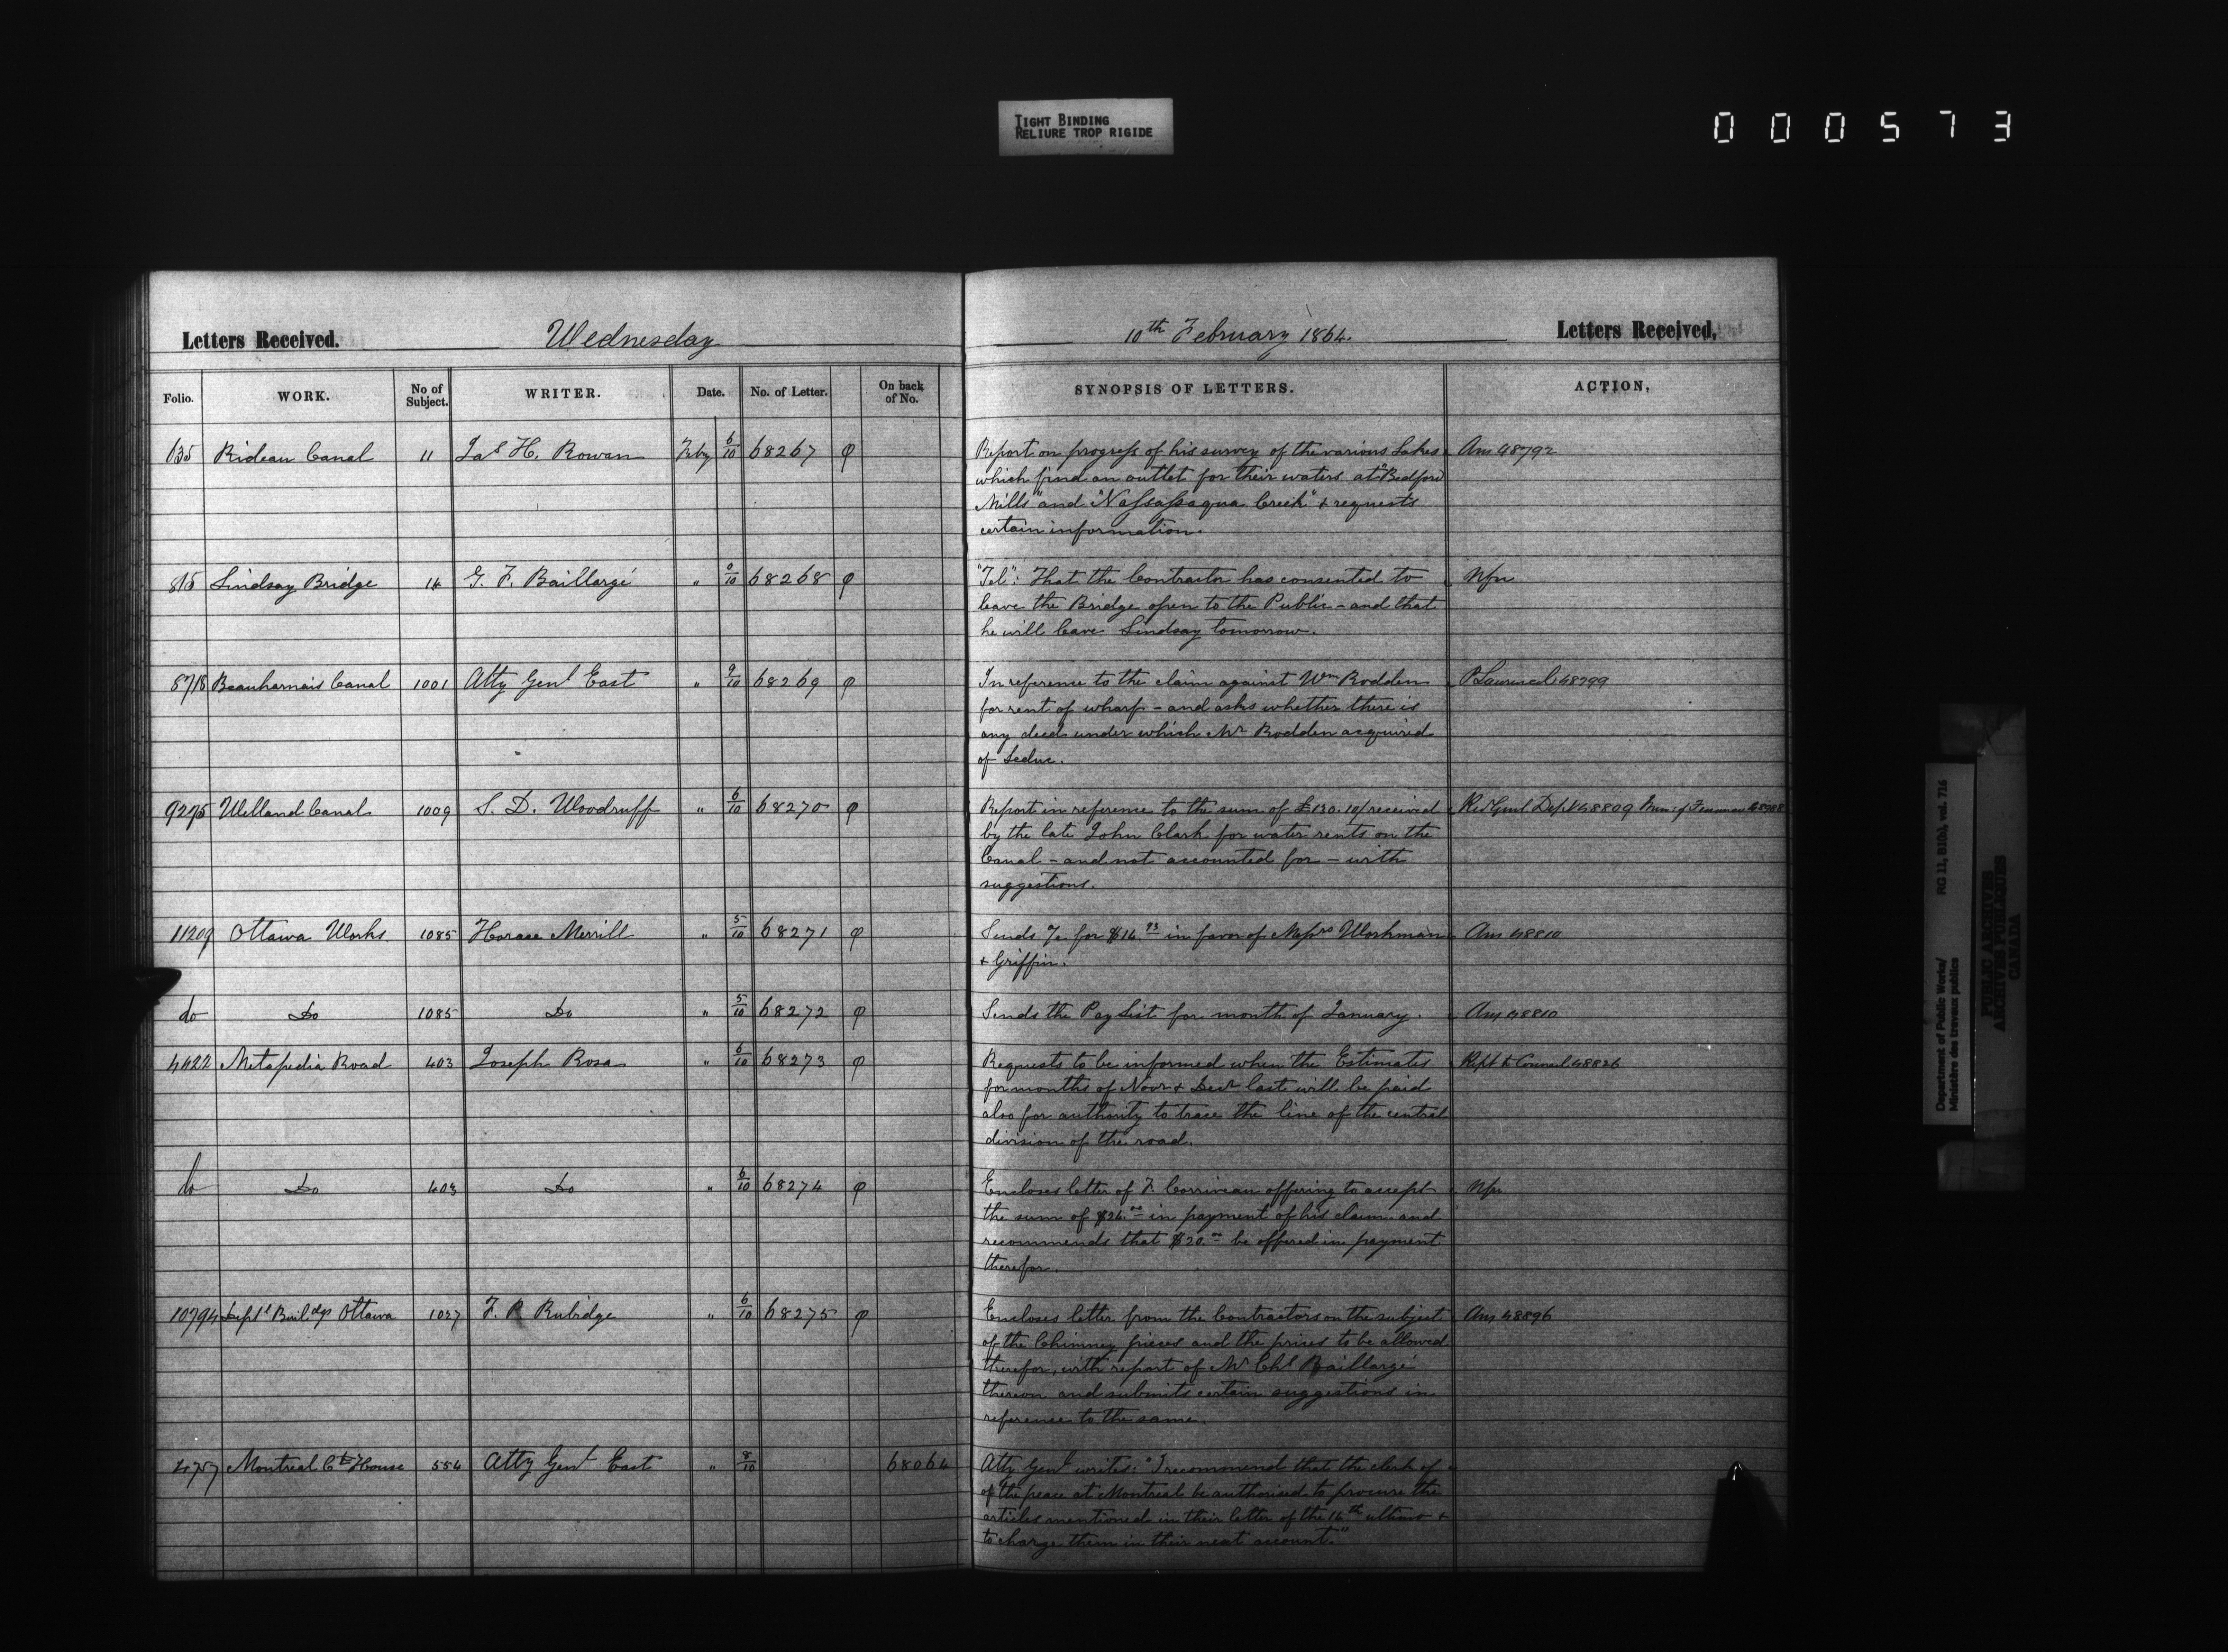 TIGHT BINDING
RELIURE TROP RIGIDE
000573
Letters Received. Wednesday 10th February 1864. Letters Received.
Folio. WORK. No of Subject. WRITER. Date. No. of Letter. On back of No. SYNOPSIS OF LETTERS. ACTION.
135 Rideau Canal 11 Jas H. Rowan Feby 6/10 68267 φ Report on progress of his survey of the various Lakes Ans 48792
which find an outlet for their waters at "Bedford
Mills" and "Nassassaqua Creek" & requests
certain information.
815 Lindsay Bridge 14 G. F. Baillargé " 9/10 68268 φ "Tel": That the Contractor has consented to Nfn
leave the Bridge open to the Public - and that
he will leave Lindsay tomorrow.
8718 Beauharnais Canal 1001 Atty Genl East " 9/10 68269 φ In reference to the claim against Wm Rodden 48799
for rent of wharf - and asks whether there is
any deed under which Mr Rodden acquired
of Leduc.
9275 Welland Canal 1009 S. D. Woodruff " 6/10 68270 φ Report in reference to the sum of £130.10/ received 48809
by the late John Clark for water rents on the
Canal - and not accounted for - with
suggestions.
11209 Ottawa Works 1085 Horace Merrill " 5/10 68271 φ Sends for $14.93 in favor of Messrs Workman Ans 48810
& Griffin.
do Do 1085 Do " 5/10 68272 φ Sends the Pay List for month of January. Ans 48810
4422 Metapedia Road 403 Joseph Rosa " 6/10 68273 φ Requests to be informed when the Estimates Rept to Council 48826
for months of Novr & Decr last will be paid
also for authority to trace the line of the central
division of the road.
do Do 403 Do " 6/10 68274 φ Encloses letter of F. Corriveau offering to accept Nfn
the sum of $24.00 in payment of his claim and
recommends that $20.00 be offered in payment
therefor.
10794 Deptl Buildgs Ottawa 1027 F. P. Rubidge " 6/10 68275 φ Encloses letter from the Contractors on the subject Ans 48896
of the Chimney pieces and the prices to be allowed
therefor, with report of Mr Chs Baillargé
thereon and submits certain suggestions in
reference to the same.
4757 Montreal Ct House 554 Atty Genl East " 8/10 68064 Atty Genl writes: "I recommend that the clerk of
of the peace at Montreal be authorised to procure the
articles mentioned in their letter of the 16th ultimo &
to charge them in their next account."
Department of Public Works/ RG 11, B1(b), vol. 716
Ministère des travaux publics
PUBLIC ARCHIVES
ARCHIVES PUBLIQUES
CANADA